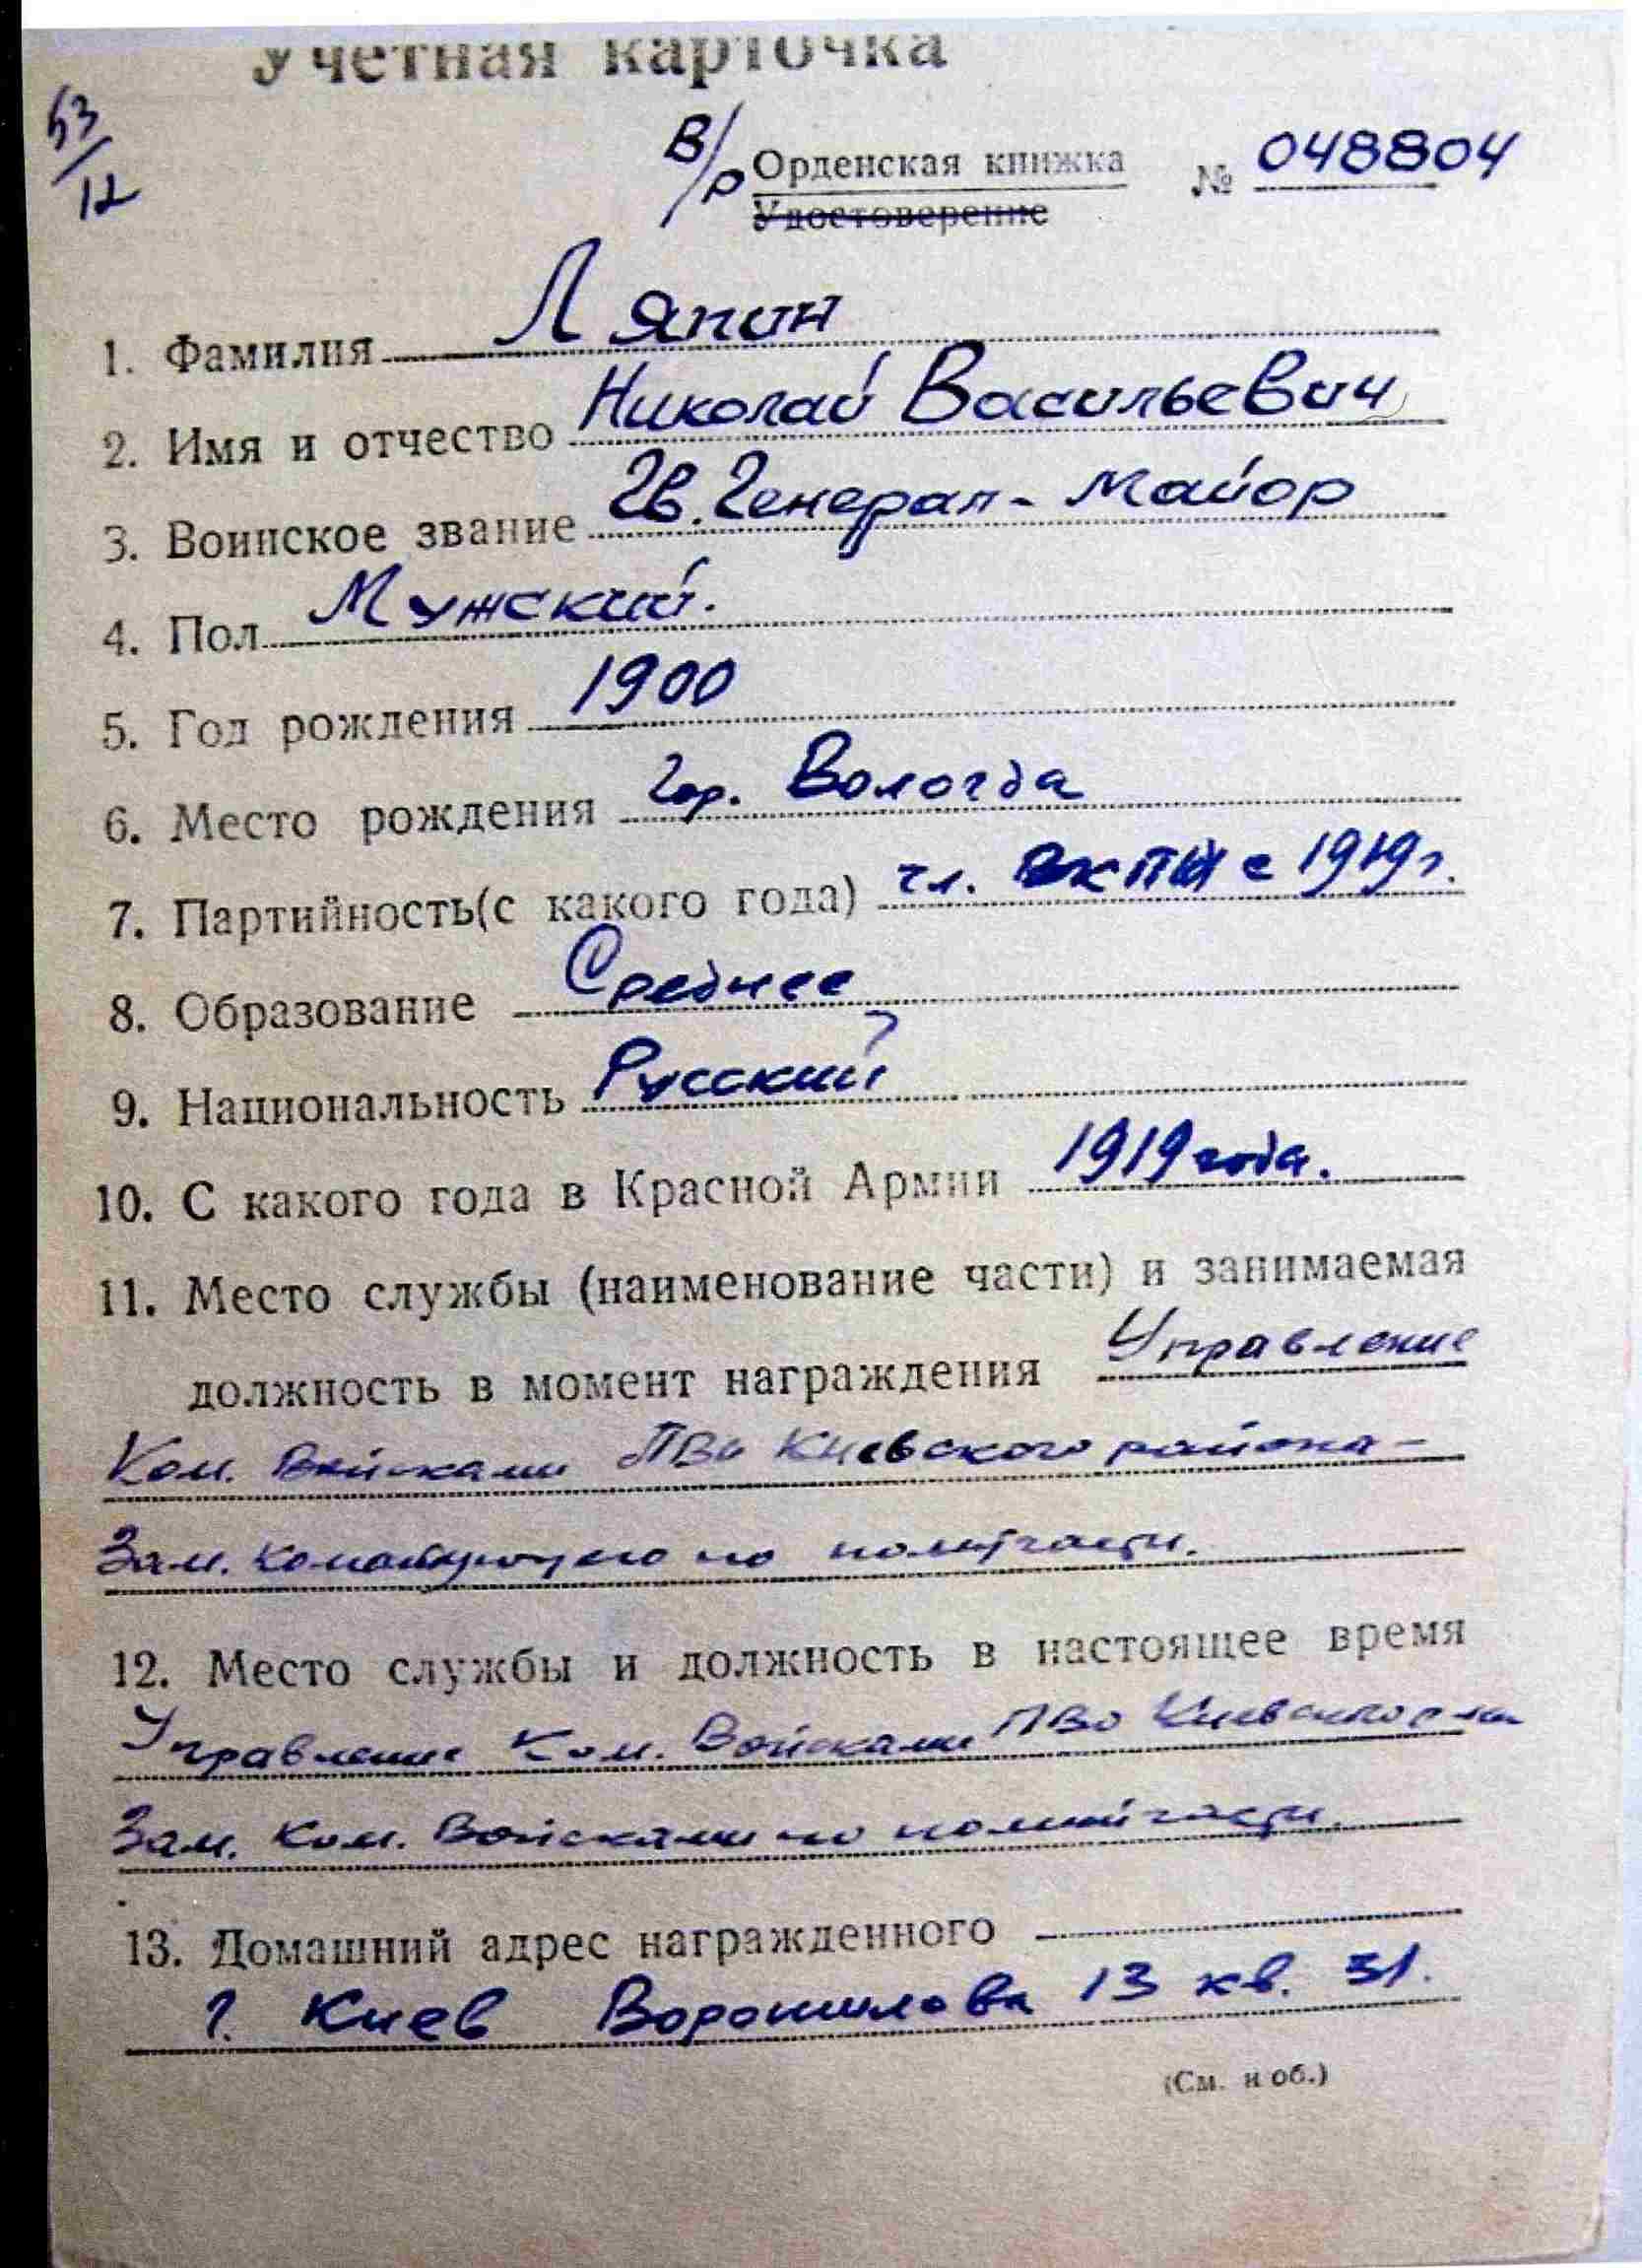 Учетная карточка
53/12
В/р Орденская книжка № 048804
Удостоверение
1. Фамилия Ляпин
2. Имя и отчество Николай Васильевич
3. Воинское звание Гв. Генерал-Майор
4. Пол Мужский.
5. Год рождения 1900
6. Место рождения Гор. Вологда
7. Партийность(с какого года) чл. с 1919г.
8. Образование Среднее
9. Национальность Русский
10. С какого года в Красной Армии 1919 года.
11. Место службы (наименование части) и занимаемая
должность в момент награждения Управление
Ком. Войсками ПВО Киевского района -
Зам. по политчасти.
12. Место службы и должность в настоящее время
Управление Ком. Войсками ПВО
Зам. Ком. Войсками по политчасти.
13. Домашний адрес награжденного
г. Киев Ворошилова 13 кв. 31.
(См. н об.)